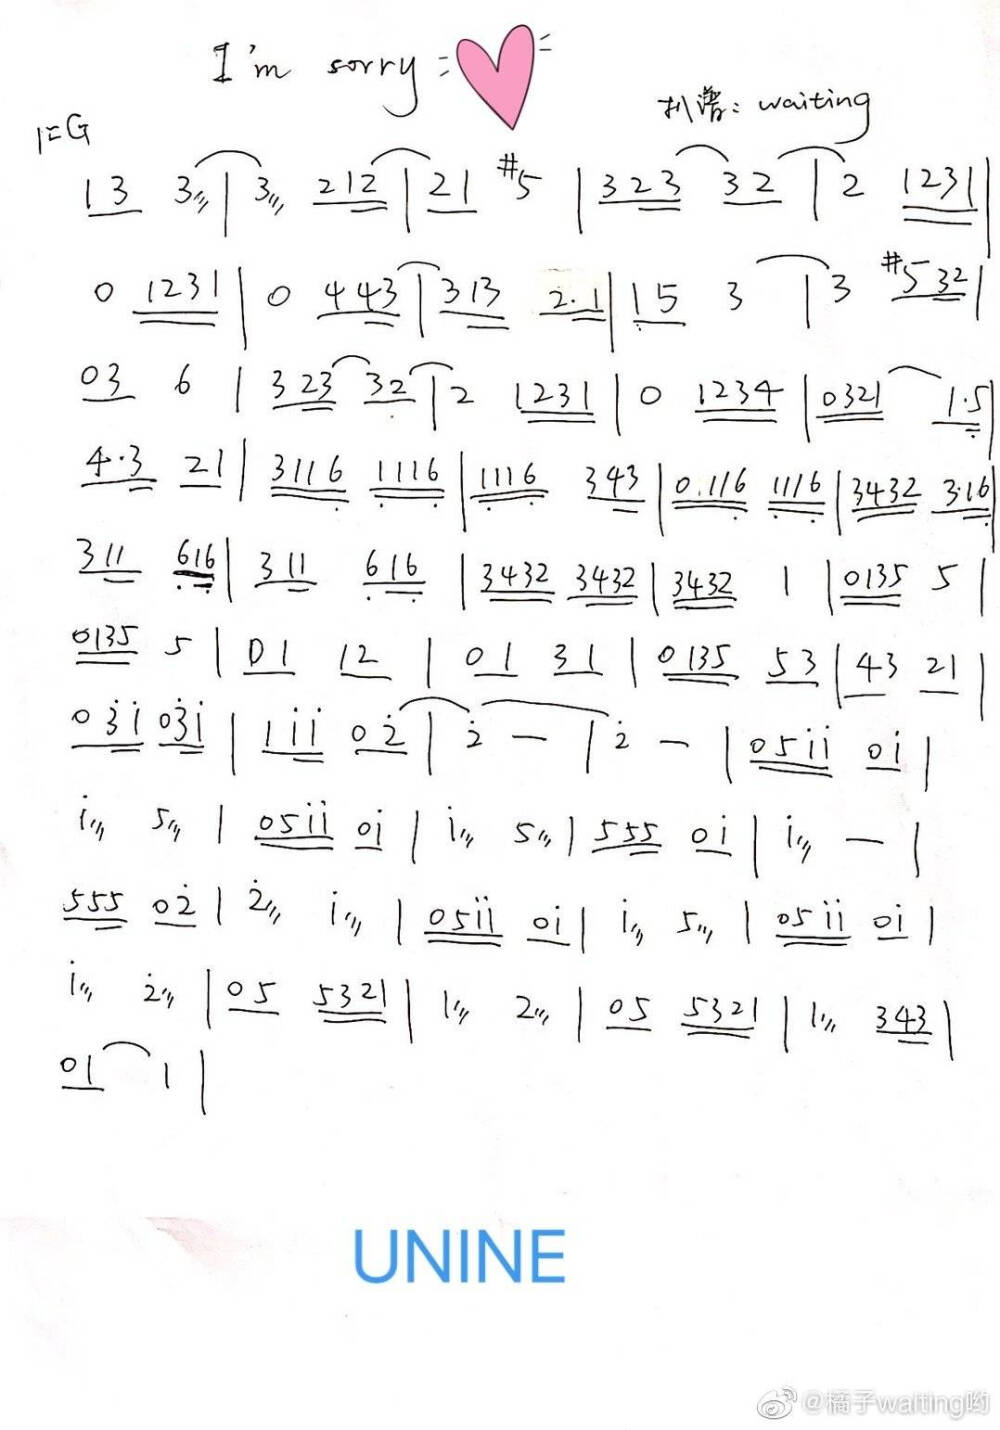 I'm sorry
扒谱: waiting
1=G
13 3〃|3〃 212|21 #5 |323 32|2 1231|
0 1231|0 443|313 2·1|15 3 |3 #532|
03 6 |323 32|2 1231|0 1234|0321 1·5|
4·3 21|3116 1116|1116 343|0.116 1116|3432 3·16|
311 616|311 616 |3432 3432|3432 1 |0135 5 |
0135 5 |01 12 |01 31 |0135 53|43 21|
03̇i̇ 03̇i̇|1i̇i̇ 02̇|2̇ — |2̇ — |05i̇i̇ 0i̇|
i̇〃 5〃 |05i̇i̇ 0i̇|i̇〃 5〃|555 0i̇|i̇〃 — |
555 02̇|2̇〃 i̇〃|05i̇i̇ 0i̇|i̇〃 5〃 |05i̇i̇ 0i̇|
i̇〃 2̇〃 |05 5321|1〃 2〃|05 5321|1〃 343|
01 1 |
UNINE
@橘子waiting哟